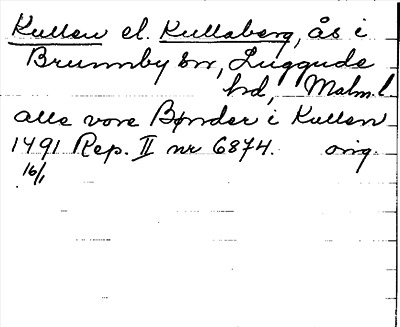 Kullen el. Kullaberg, ås i
Brunnby sn, Luggude
hd, Malm. l.
alle vore Bønder i Kullen
1491 Rep. II nr 6874. orig.
16/1